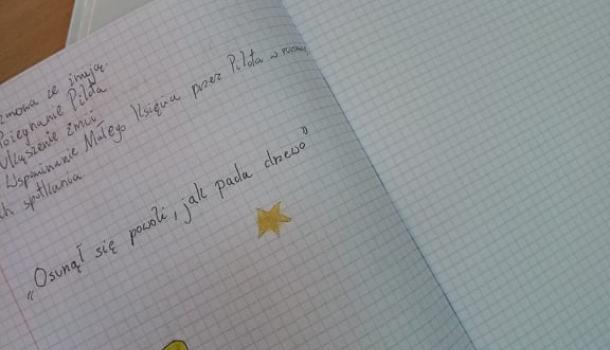 zmowa ze żmiją.
Pożegnanie Pilota
Ukąszenie żmii
Wspominanie Małego Księcia przez Pilota w rocznicę
ch spotkania
„Osunął się powoli, jak pada drzewo”